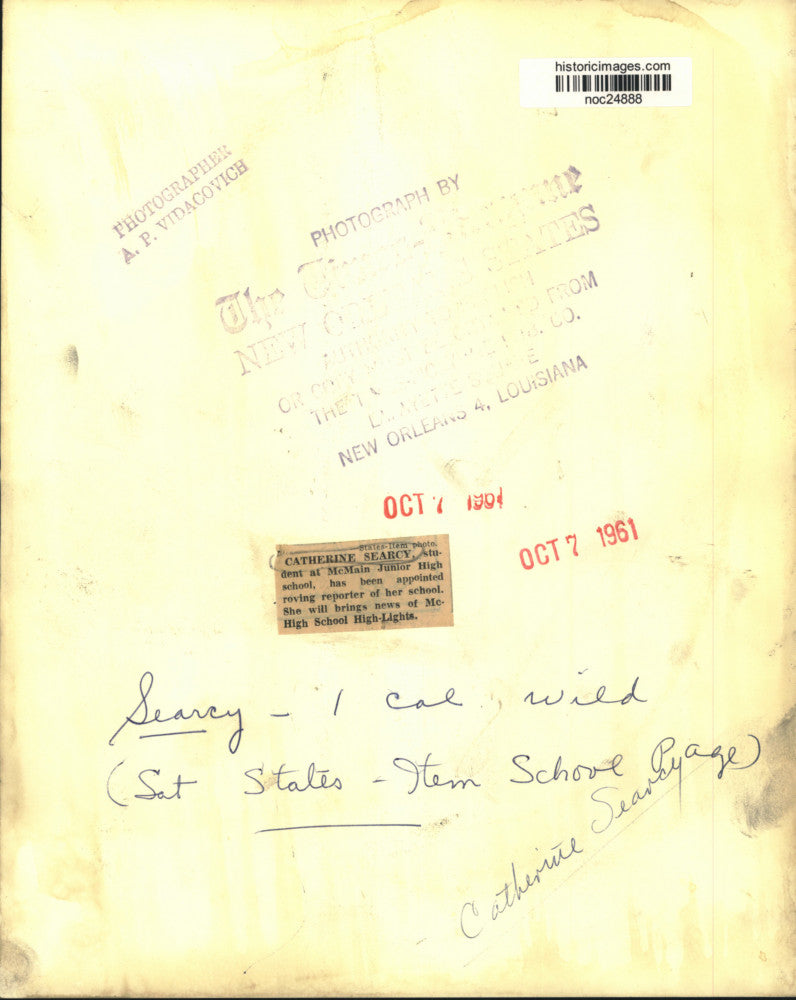 historicimages.com
noc24888
PHOTOGRAPHER
A. P. VIDACOVICH
PHOTOGRAPH BY
The
NEW STATES
OR COPY FROM
THE CO.
NEW ORLEANS 4, LOUISIANA
OCT 7 196
OCT 7 1961
States-Item photo.
CATHERINE SEARCY, stu-
dent at McMain Junior High
school, has been appointed
roving reporter of her school.
She will brings news of Mc-
High School High-Lights.
Searcy - 1 col wild
(Sat States - Item School Page)
Catherine Searcy